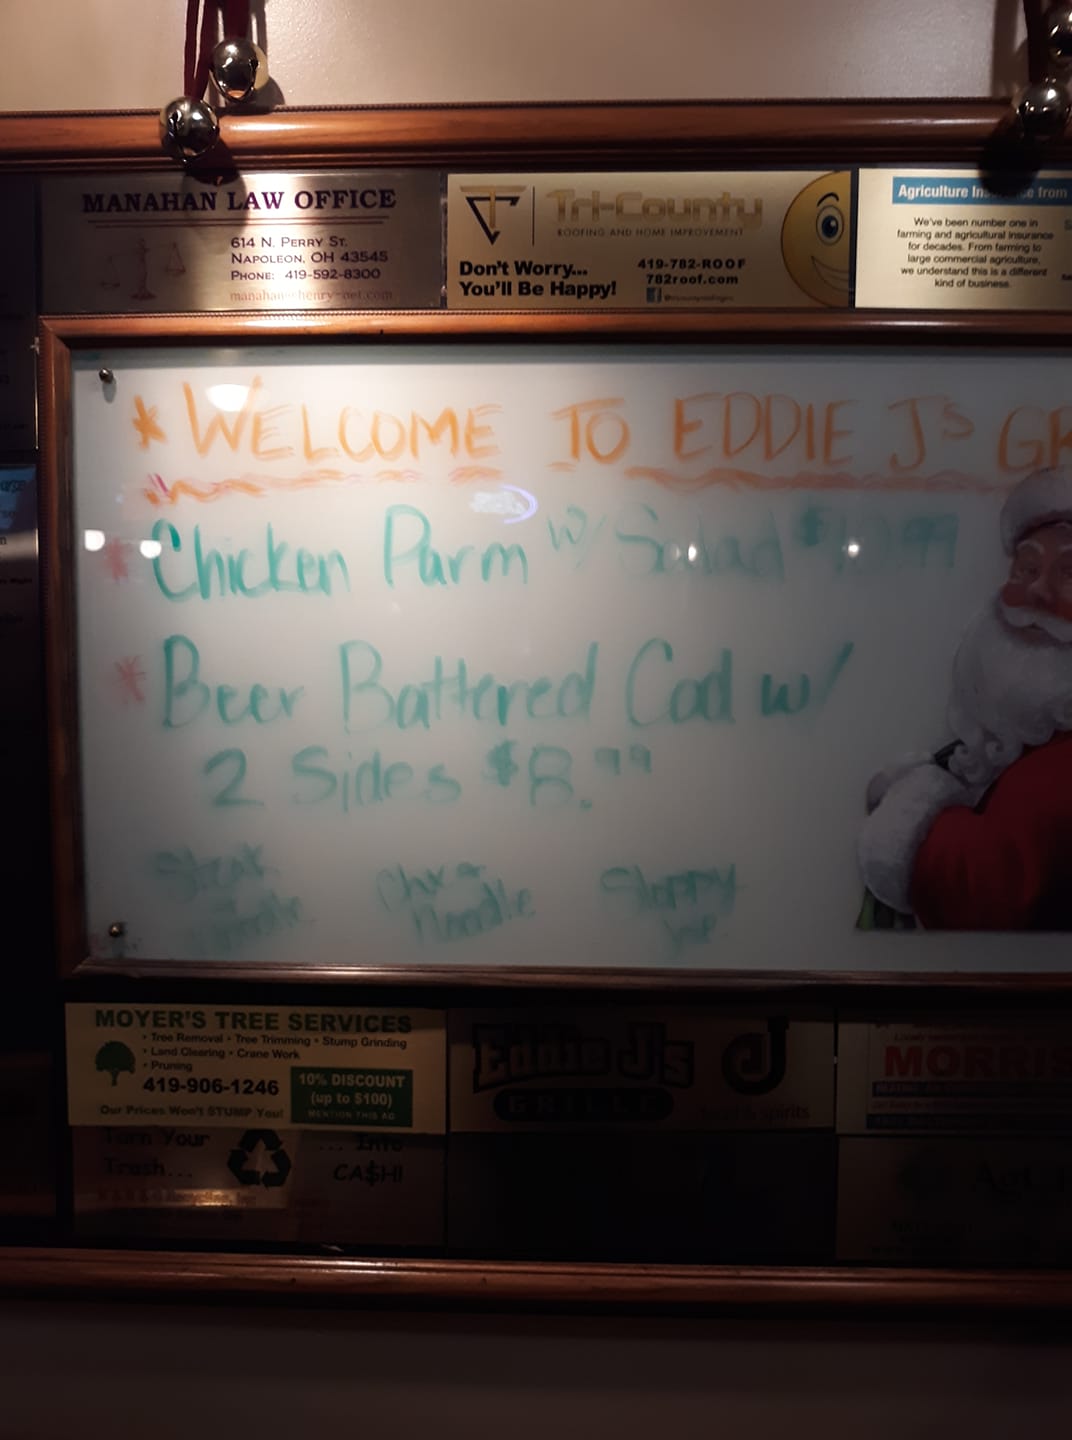 MANAHAN LAW OFFICE
614 N. PERRY ST.
NAPOLEON, OH 43545
PHONE: 419-592-8300
Tri-County
ROOFING AND HOME IMPROVEMENT
Don't Worry...
You'll Be Happy!
419-782-ROOF
782roof.com
Agriculture Insurance from
We've been number one in
farming and agricultural insurance
for decades. From farming to
large commercial agriculture,
we understand this is a different
kind of business.
* WELCOME TO EDDIE J'S GR
* Chicken Parm w/ Salad $10.99
* Beer Battered Cod w/
2 Sides $8.99
Steak
Noodle
Chx
Noodle
Sloppy
Joe
MOYER'S TREE SERVICES
• Tree Removal • Tree Trimming • Stump Grinding
• Land Clearing • Crane Work
• Pruning
419-906-1246
10% DISCOUNT
(up to $100)
MENTION THIS AD
Our Prices Won't STUMP You!
Eddie J's
GRILLE
& spirits
MORRIS
Turn Your
Trash...
... Into
CA$H!